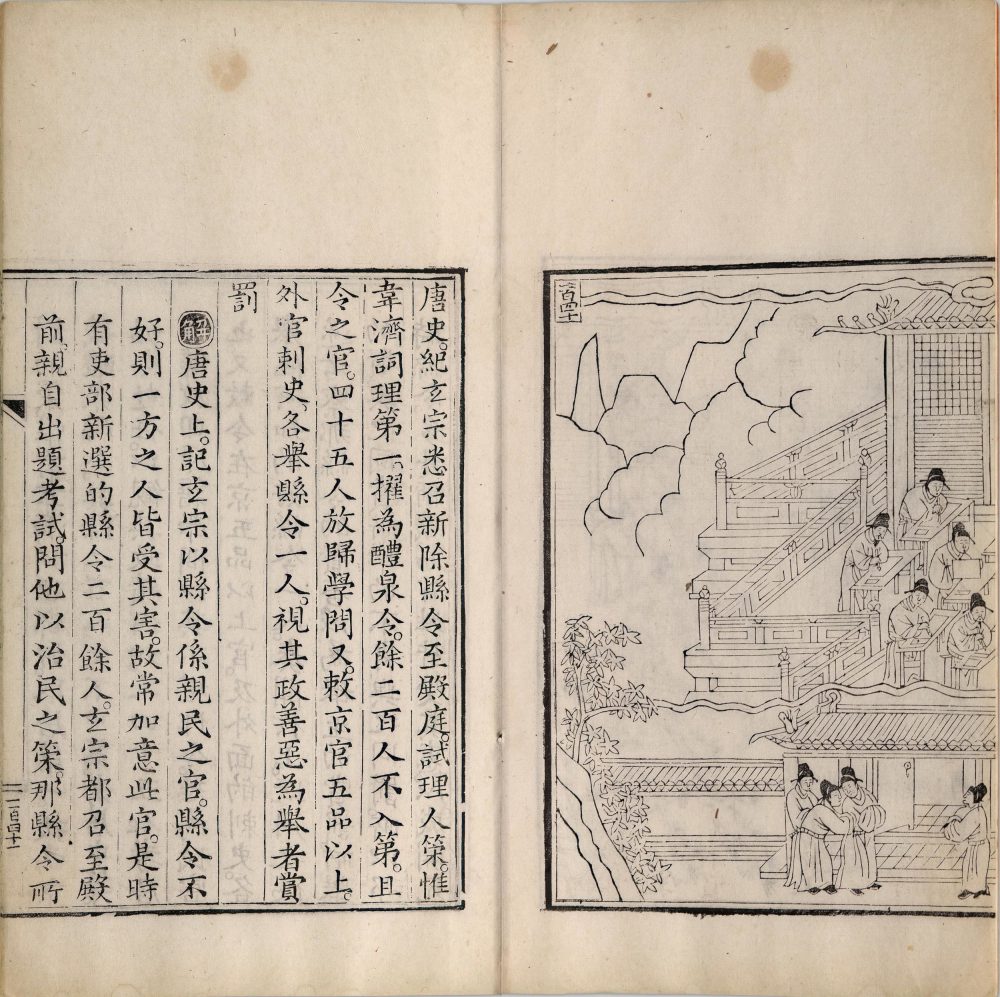 一百四十
唐史。紀玄宗悉召新除縣令至殿庭。試理人策。惟
韋濟詞理第一。擢為醴泉令。餘二百人不入第。且
令之官。四十五人放歸學問。又敕京官五品以上。
外官刺史、各舉縣令一人。視其政善惡為舉者賞
罰
解 唐史上。記玄宗以縣令係親民之官。縣令不
好。則一方之人皆受其害。故常加意此官。是時
有吏部新選的縣令二百餘人。玄宗都召至殿
前。親自出題考試。問他以治民之策。那縣令所
一百四十一